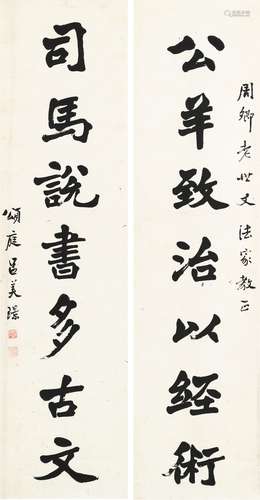 周卿老世丈法家教正
公羊致治以經術
司馬說書多古文
頌庭呂美璟